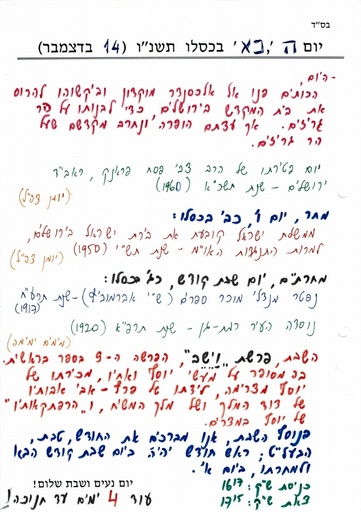 בס״ד
יום ה׳, כא׳ בכסלו תשנ״ו (14 בדצמבר)
- היום,
הכותים פנו אל אלכסנדר מוקדון וביקשוהו להרוס
את בית המקדש בירושלים כדי לבנותו על הר
גריזים. אך עצתם הופרה, ונחרב מקדשם שעל
הר גריזים.
יום פטירתו של הרב צבי פסח פראנק, ראב״ד
ירושלים - שנת תשכ״א (1960)
(יומן צה״ל)
מחר, יום ו׳, כב׳ בכסלו:
ממשלת ישראל קובעת את בירת ישראל בירושלים,
למרות התנגדות האו״מ - שנת תש״י (1950)
(יומן צה״ל)
מחרתיים, יום שבת קודש, כג׳ בכסלו:
נפטר מנדלי מוכר ספרים (ש״י אברמוביץ) - שנת תרע״ח
(1917)
נוסדה העיר רמת-גן - שנת תרפ״א (1920)
(מימים ימימה)
השבת, פרשת ״וישב״, הפרשה ה-9 בספר בראשית.
בה מסופר על מעשי יוסף ואחיו, מכירתו של
יוסף מצרימה, לידתו של פרץ - אבי אבותיו
של דוד המלך ושל מלך המשיח, ו״הרפתקאותיו״
של יוסף במצרים.
בנוסף השבת, אנו מברכים את החודש, טבת,
הבעל״ט; ראש חודש יהיה ביום שבת קודש הבא
ולמחרתו, ביום א׳.
כניסת ש״ק: 16:17
צאת ש״ק: 17:15
יום נעים ושבת שלום!
עוד 4 ימים עד חנוכה!